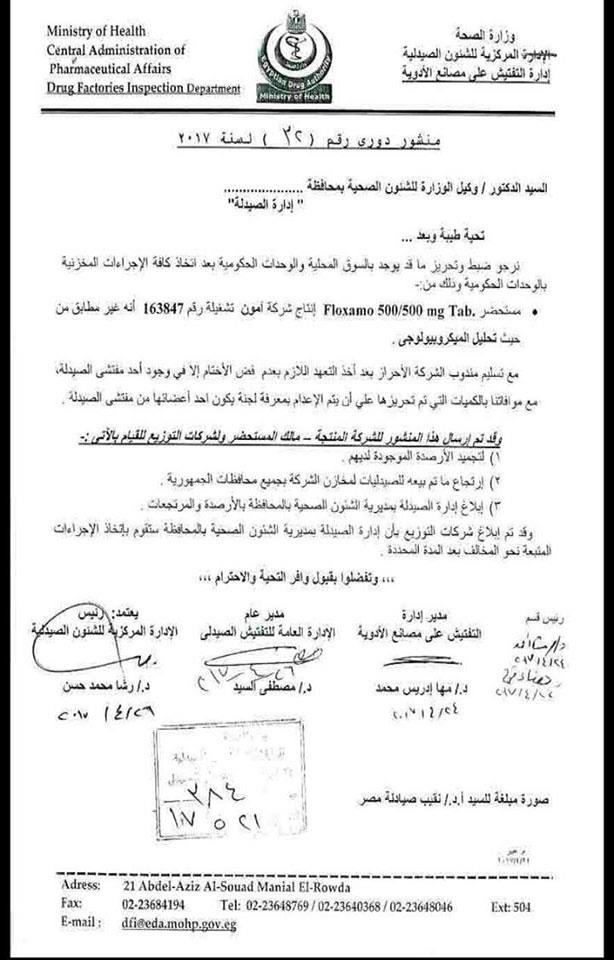 Ministry of Health
Central Administration of
Pharmaceutical Affairs
Drug Factories Inspection Department
Egyptian Drug Authority
Ministry of Health
وزارة الصحة
الإدارة المركزية للشئون الصيدلية
إدارة التفتيش على مصانع الأدوية
منشور دورى رقم ( ٣٢ ) لسنة ٢٠١٧
السيد الدكتور / وكيل الوزارة للشئون الصحية بمحافظة ....................
" إدارة الصيدلة"
تحية طيبة وبعد ...
نرجو ضبط وتحريز ما قد يوجد بالسوق المحلية والوحدات الحكومية بعد اتخاذ كافة الإجراءات المخزنية
بالوحدات الحكومية وذلك من:-
• مستحضر Floxamo 500/500 mg Tab. إنتاج شركة آمون تشغيلة رقم 163847 أنه غير مطابق من
حيث تحليل الميكروبيولوجى .
مع تسليم مندوب الشركة الأحراز بعد أخذ التعهد اللازم بعدم فض الأختام إلا في وجود أحد مفتشى الصيدلة،
مع موافاتنا بالكميات التي تم تحريزها علي أن يتم الإعدام بمعرفة لجنة يكون احد أعضائها من مفتشى الصيدلة .
وقد تم إرسال هذا المنشور للشركة المنتجة – مالك المستحضر ولشركات التوزيع للقيام بالأتى :-
١) لتجميد الأرصدة الموجودة لديهم .
٢) إرتجاع ما تم بيعه للصيدليات لمخازن الشركة بجميع محافظات الجمهورية .
٣) إبلاغ إدارة الصيدلة بمديرية الشئون الصحية بالمحافظة بالأرصدة والمرتجعات .
وقد تم إبلاغ شركات التوزيع بأن إدارة الصيدلة بمديرية الشئون الصحية بالمحافظة ستقوم بإتخاذ الإجراءات
المتبعة نحو المخالف بعد المدة المحددة .
،،، وتفضلوا بقبول وافر التحية والاحترام ،،،
رئيس قسم
٢٠١٧/٤/٢٤
٢٠١٧/٤/٢٤
مدير إدارة
التفتيش على مصانع الأدوية
د/ مها إدريس محمد
٢٠١٧/٤/٢٤
مدير عام
الإدارة العامة للتفتيش الصيدلى
٢٠١٧-٤-٢٦
د./ مصطفى السيد
يعتمد: رئيس
الإدارة المركزية للشئون الصيدلية
د./ رشا محمد حسن
٢٠١٧/٤/٢٦
٣٨٤
٢١ ٥ ١٧
صورة مبلغة للسيد أ.د./ نقيب صيادلة مصر
Adress: 21 Abdel-Aziz Al-Souad Manial El-Rowda
Fax: 02-23684194 Tel: 02-23648769 / 02-23640368 / 02-23648046 Ext: 504
E-mail : dfi@eda.mohp.gov.eg